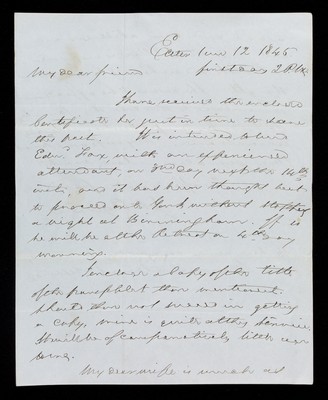 Exeter 1 mo 12 1845
My dear friend first day 2 P.M.
I have secured the enclosed
Certificate here just in time to save
this post. It is intended to send
Edwd Fox, with an experienced
attendant, on 3rd day next the 14th
inst, and it has been thought best
to proceed on to York without stopping
a night at Birmingham. If so
he will be at the Retreat on 4th day
morning.
I enclose a copy of the title
of the pamphlet thou mentioned.
Should thou not succeed in getting
a copy, mine is quite at thy service.
It will be of comparatively little use
to me.
My dear wife is much as